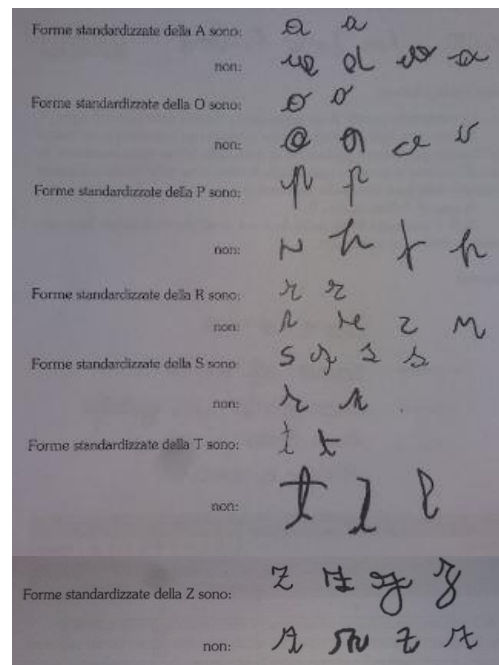 Forme standardizzate della A sono: a a
non:
Forme standardizzate della O sono: o o
non:
Forme standardizzate della P sono: p p
non:
Forme standardizzate della R sono: r r
non:
Forme standardizzate della S sono: s s s s
non:
Forme standardizzate della T sono: t t
non:
Forme standardizzate della Z sono: z z z z
non: